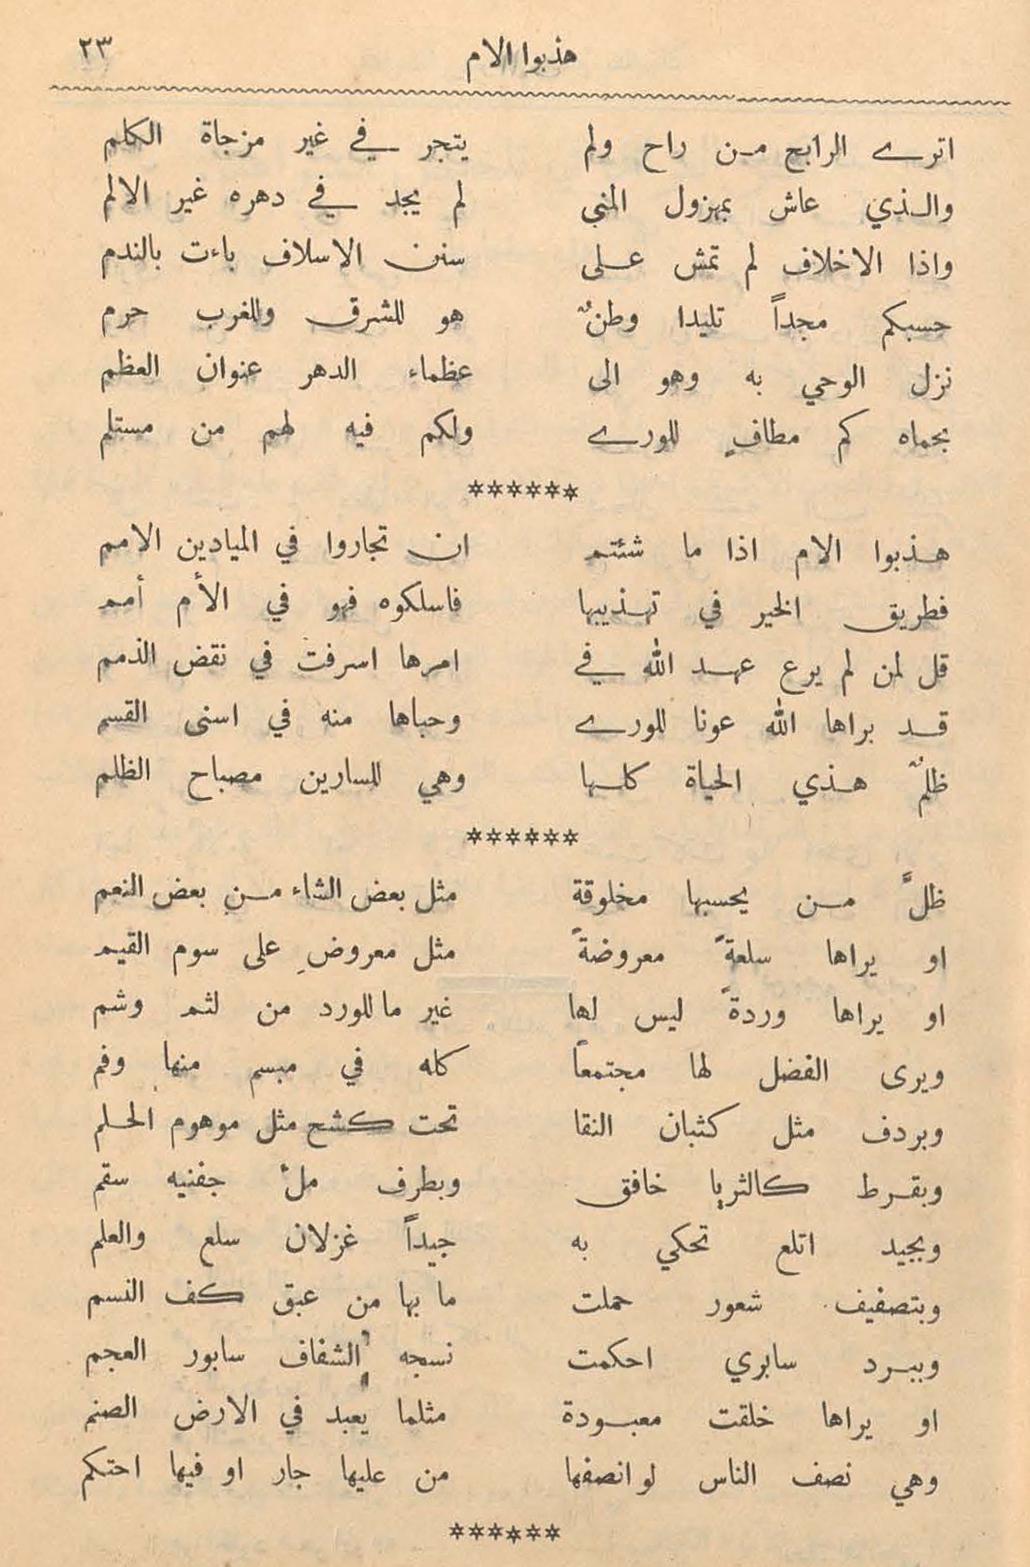 هذبوا الام ٢٣
اترى الرابح من راح ولم يتجر في غير مزجاة الكلم
والذي عاش بمهزول المنى لم يجد في دهره غير الالم
واذا الاخلاف لم تمش على سنن الاسلاف باءت بالندم
حسبكم مجداً تليدا وطنٌ هو للشرق وللغرب حرم
نزل الوحي به وهو الى عظماء الدهر عنوان العظم
بحماه كم مطافٍ للورى ولكم فيه لهم من مستلم
******
هذبوا الام اذا ما شئتم ان تجاروا في الميادين الامم
فطريق الخير في تهذيبها فاسلكوه فهو في الأم أمم
قل لمن لم يرع عهد الله في امرها اسرفت في نقض الذمم
قد براها الله عونا للورى وحباها منه في اسنى القسم
ظلمٌ هذي الحياة كلها وهي للسارين مصباح الظلم
******
ظلَّ من يحسبها مخلوقة مثل بعض الشاء من بعض النعم
او يراها سلعةً معروضةً مثل معروضِ على سوم القيم
او يراها وردةً ليس لها غير ما للورد من لثم وشم
ويرى الفضل لها مجتمعاً كله في مبسم منها وفم
وبردف مثل كثبان النقا تحت كشح مثل موهوم الحلم
وبقرط كالثريا خافق وبطرف ملأ جفنيه سقم
وبجيد اتلع تحكي به جيداً غزلان سلع والعلم
وبتصفيف شعور حملت ما بها من عبق كف النسم
وببرد سابري احكمت نسجه الشفاف سابور العجم
او يراها خلقت معبودة مثلما يعبد في الارض الصنم
وهي نصف الناس لو انصفها من عليها جار او فيها احتكم
******